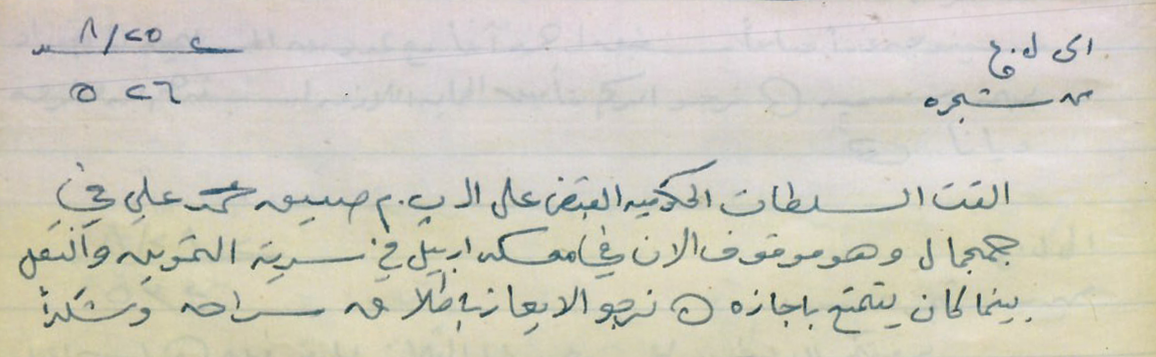 الى ل.ق ٢٥/٨
من شجره ٥٢٦
القت السلطات الحكوميه القبض على الـ ب.م صديق محمد علي في
جمجمال وهو موقوف الان في معسكر اربيل في سرية التموين والنقل
بينما كان يتمتع باجازه ٥ نرجو الايعاز باطلاق سراحه وشكراً